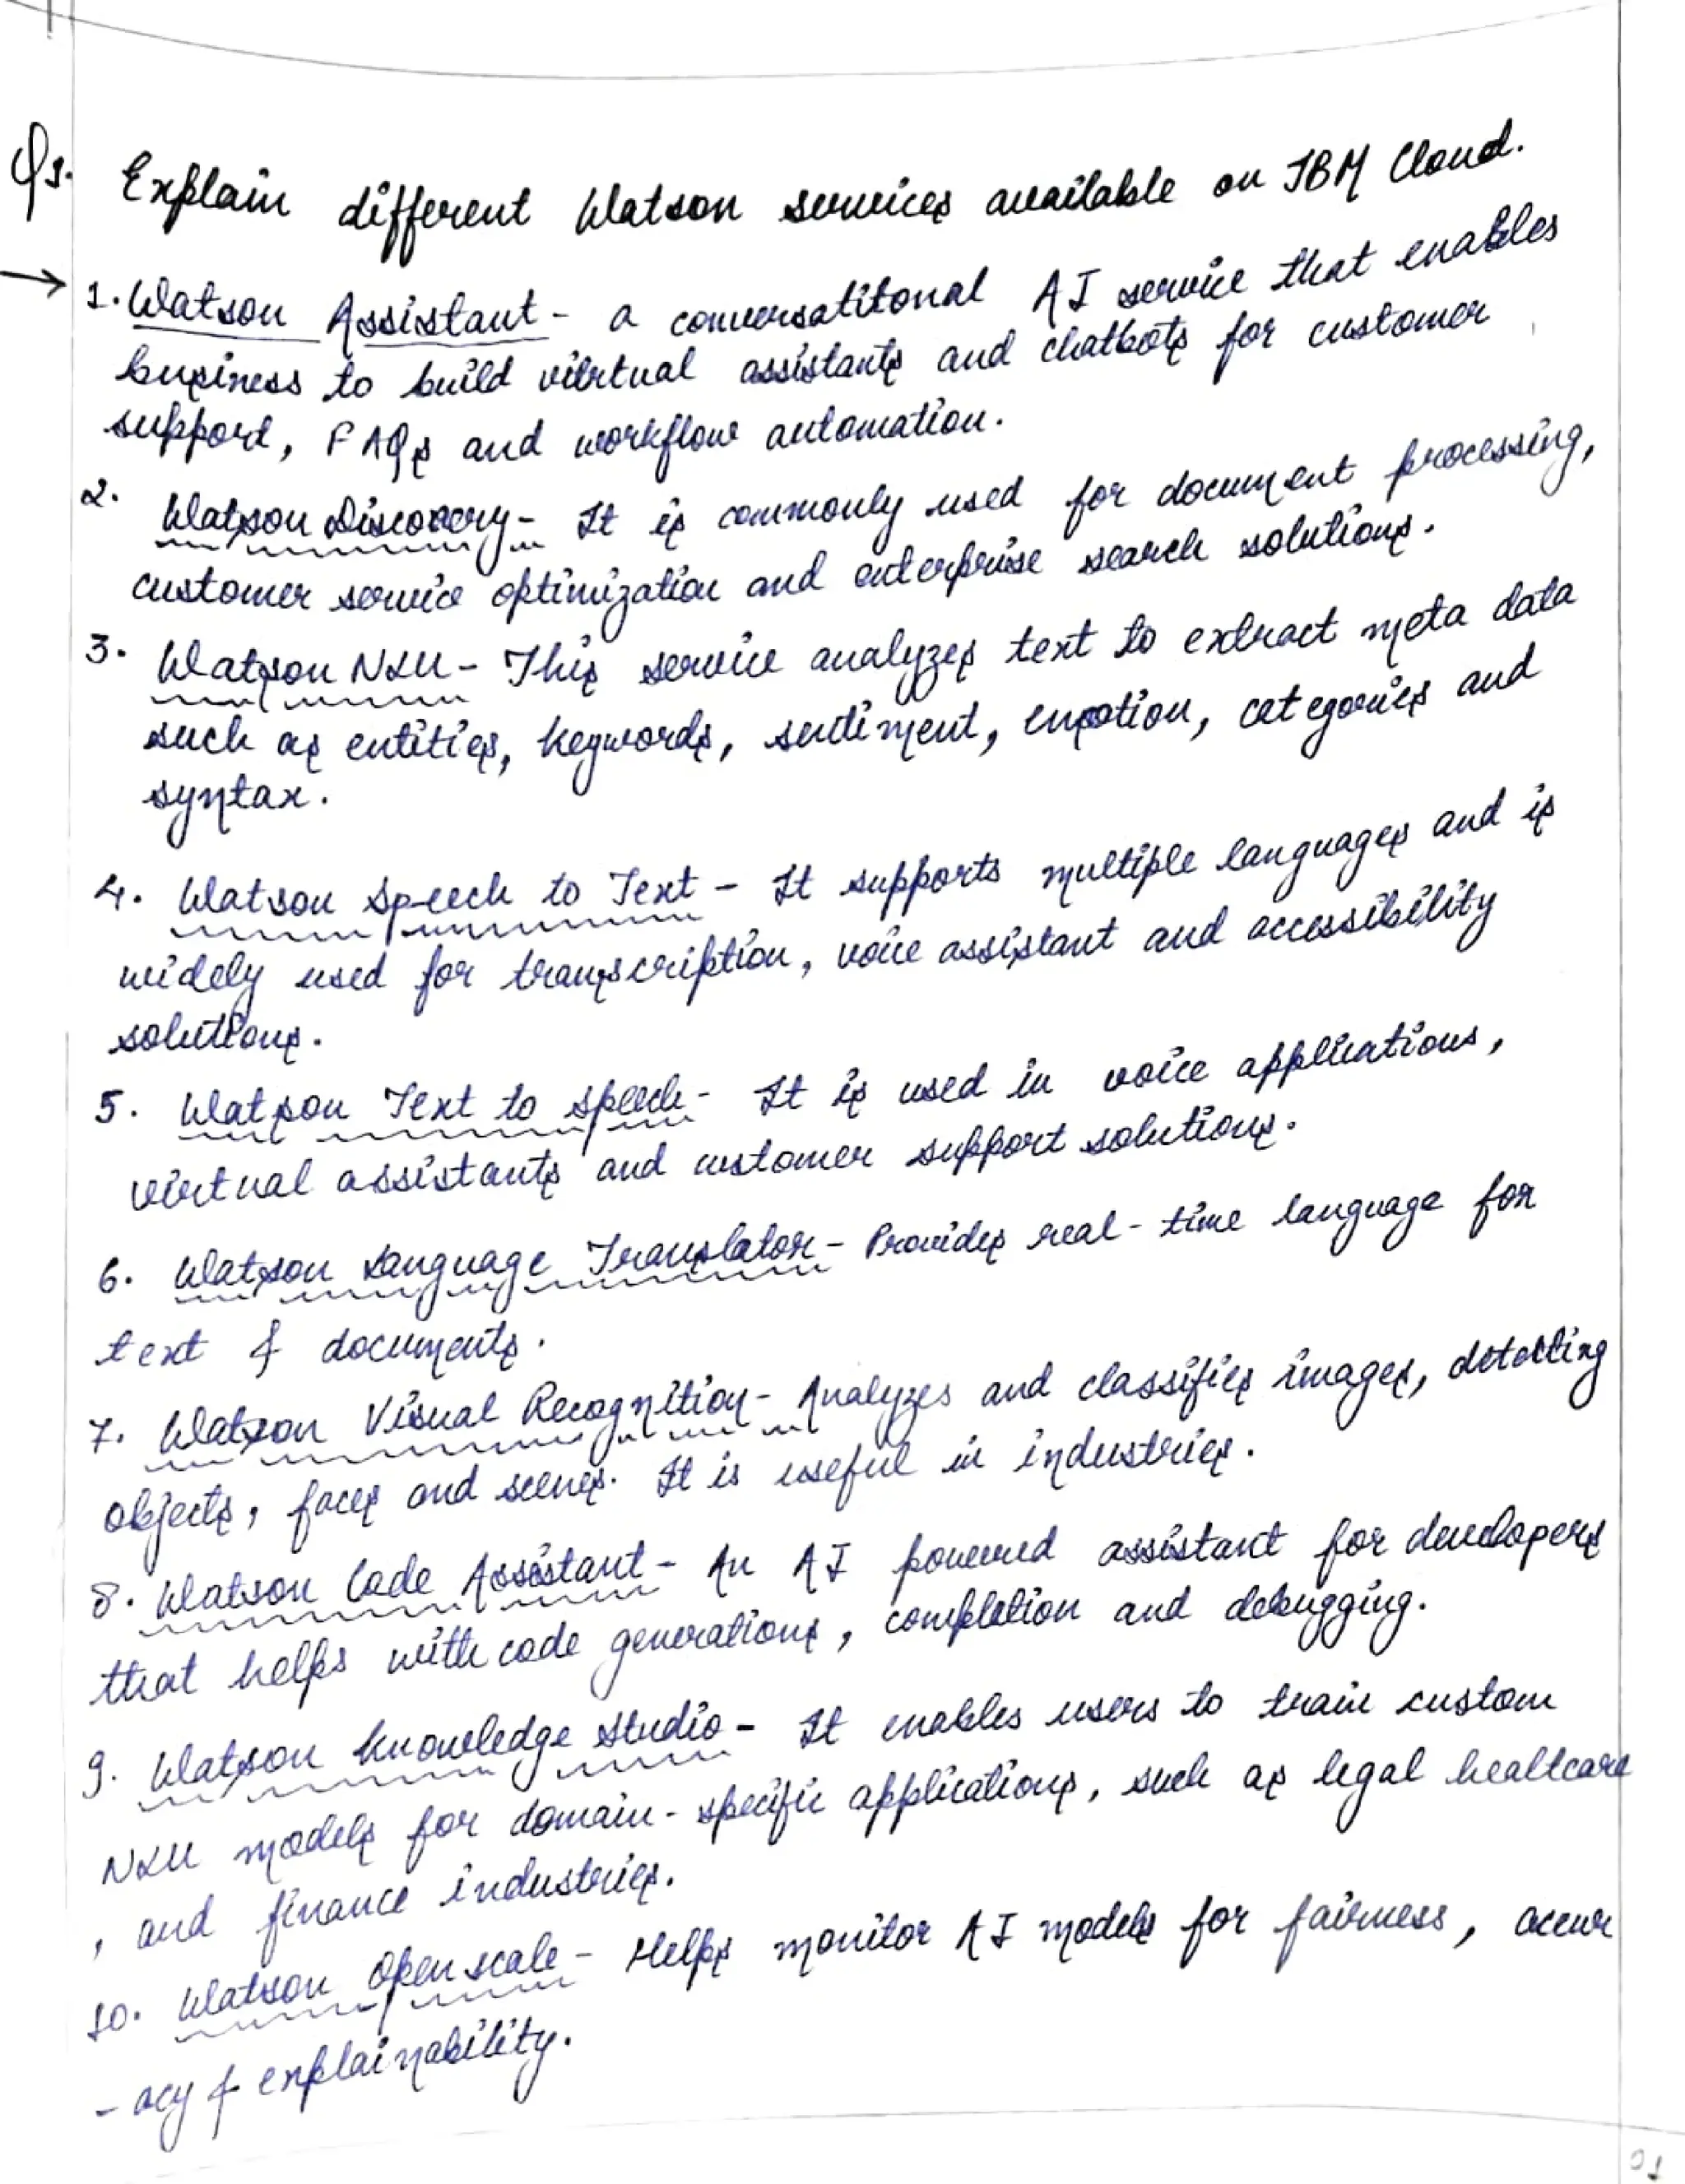 Q1. Explain different Watson services available on IBM Cloud.
→ 1. Watson Assistant - a conversatitonal AI service that enables
business to build virtual assistants and chatbots for customer
support, FAQs and workflow automation.
2. Watson Discovery - It is commonly used for document processing,
customer service optimization and enterprise search solutions.
3. Watson NLU - This service analyzes text to extract meta data
such as entities, keywords, sentiment, emotion, categories and
syntax.
4. Watson Speech to Text - It supports multiple languages and is
widely used for transcription, voice assistant and accessibility
solutions.
5. Watson Text to speech - It is used in voice applications,
virtual assistants and customer support solutions.
6. Watson Language Translator - Provides real-time language for
text & documents.
7. Watson Visual Recognition - Analyzes and classifies images, detecting
objects, faces and scenes. It is useful in industries.
8. Watson Code Assistant - An AI powered assistant for developers
that helps with code generations, completion and debugging.
9. Watson knowledge studio - It enables users to train custom
NLU models for domain-specific applications, such as legal healtcare
, and finance industries.
10. Watson Open scale - Helps monitor AI models for fairness, accur
- acy & explainability.